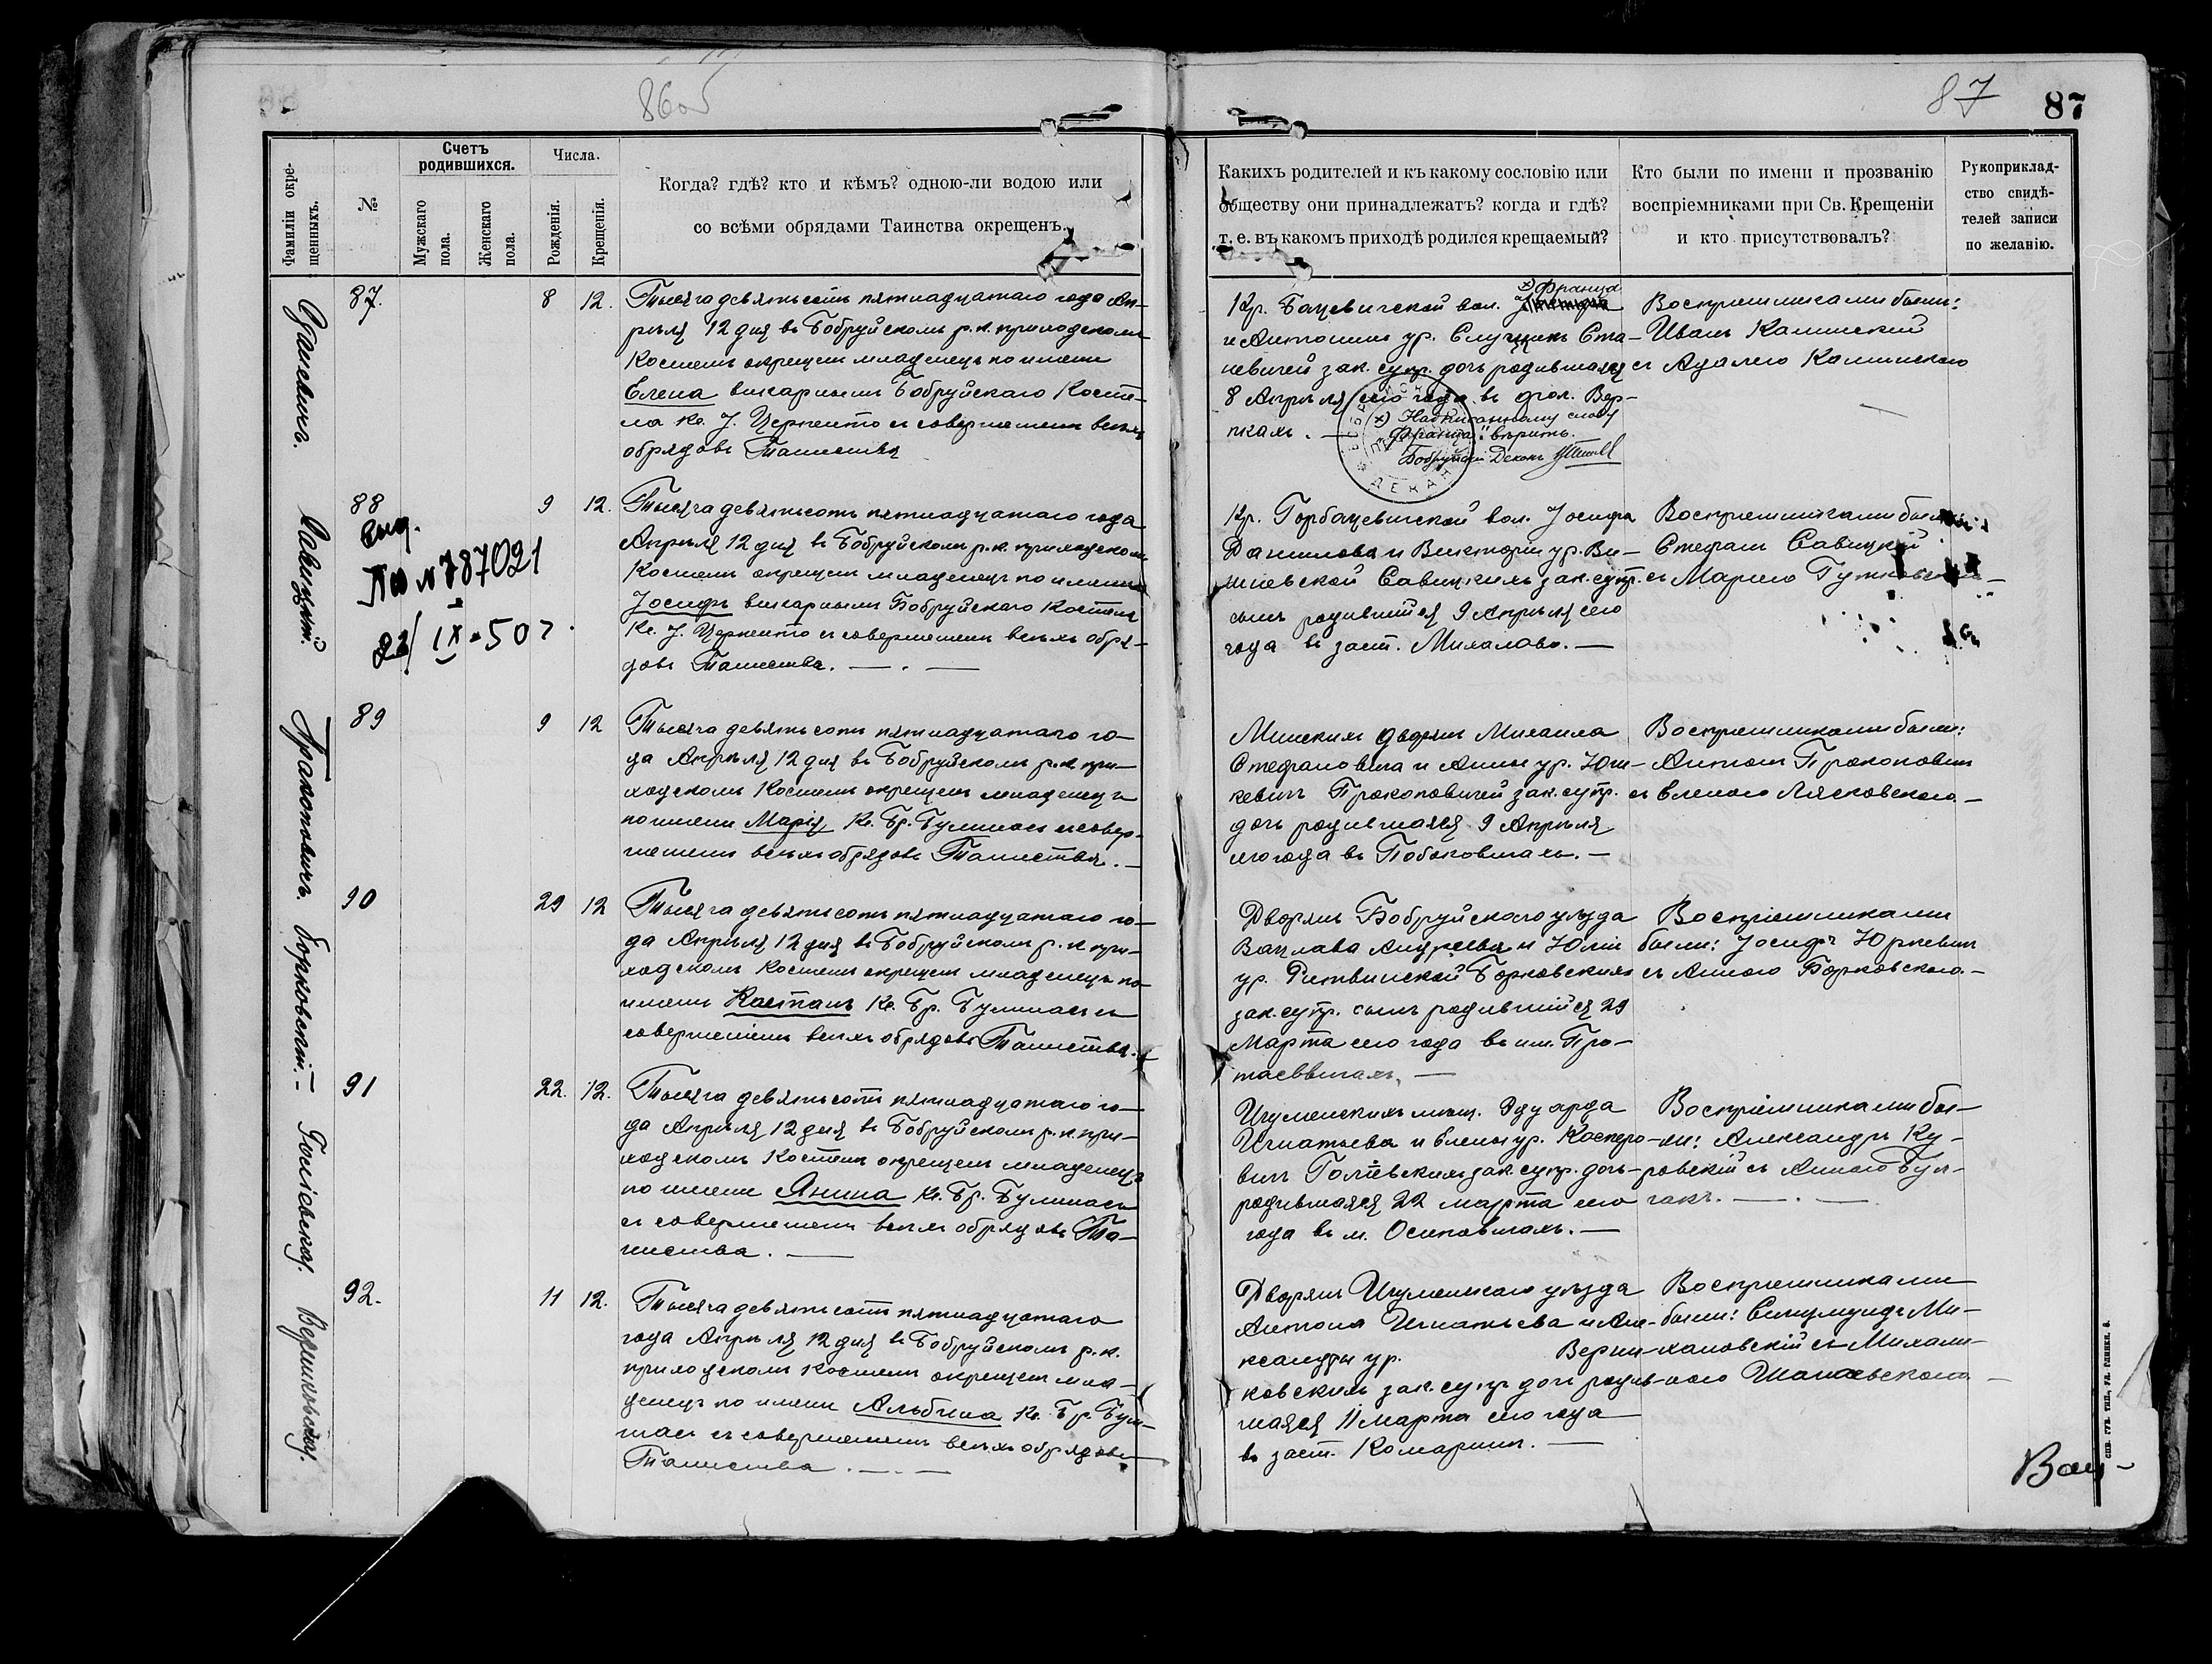 86об
87
87
Фамиліи окре-
щенныхъ.
№
Счетъ
родившихся.
Мужскаго
пола.
Женскаго
пола.
Числа.
Рожденія.
Крещенія.
Когда? гдѣ? кто и кѣмъ? одною-ли водою или
со всѣми обрядами Таинства окрещенъ.
Какихъ родителей и къ какому сословію или
обществу они принадлежатъ? когда и гдѣ?
т. е. въ какомъ приходѣ родился крещаемый?
Кто были по имени и прозванію
воспріемниками при Св. Крещеніи
и кто присутствовалъ?
Рукоприклад-
ство свидѣ-
телей записи
по желанію.
87.
8
12.
Тысяча девятьсотъ пятнадцатаго года Ап-
рѣля 12 дня въ Бобруйскомъ р.к. приходскомъ
Костелѣ окрещенъ младенецъ по имени
Елена викарнымъ Бобруйскаго Косте-
ла Кс. І. Церпенто съ совершеніемъ всѣхъ
обрядовъ Таинства
Кр. Бацевичской вол.
х) Франца
и Антонины ур. Слуцкихъ Ста-
невичей зак. супр. дочь родившаяся
8 Апрѣля сего года въ фол. Вер-
пкахъ. —
х) Надписанному слову
"Франца" вѣрить.
Бобруйскій Деканъ
Воспріемниками были:
Иванъ Калинскій
съ Адалею Калинскою
Савицкій.
88
выд.
787021
22/IX-50 г.
9
12.
Тысяча девятьсотъ пятнадцатаго года
Апрѣля 12 дня въ Бобруйскомъ р.к. приходскомъ
Костелѣ окрещенъ младенецъ по имени
Іосифъ викарнымъ Бобруйскаго Костела
Кс. І. Церпенто съ совершеніемъ всѣхъ обря-
довъ Таинства. — . —
Кр. Горбацевичской вол. Іосифа
Данилова и Викторіи ур. Ви-
шневской Савицкихъ зак. супр.
сынъ родившійся 9 Апрѣля сего
года въ заст. Михалово. —
Воспріемниками были
Стефанъ Савицкій
съ Маріею
Прокоповичъ.
89
9
12
Тысяча девятьсотъ пятнадцатаго го-
да Апрѣля 12 дня въ Бобруйскомъ р.к. при-
ходскомъ Костелѣ окрещенъ младенецъ
по имени Марія Кс. Бр. Бутинасъ съ совер-
шеніемъ всѣхъ обрядовъ Таинства. —
Минскихъ дворянъ Михаила
Стефановича и Анны ур. Юш-
кевичъ Прокоповичей зак. супр.
дочь родившаяся 9 Апрѣля
сего года въ Побоковичахъ. —
Воспріемниками были:
Антонъ Прокоповичъ
съ Еленою Лясковскою. —
Борковскій. —
90
29
12
Тысяча девятьсотъ пятнадцатаго го-
да Апрѣля 12 дня въ Бобруйскомъ р. к. при-
ходскомъ Костелѣ окрещенъ младенецъ по
имени Кастанъ Кс. Бр. Бутинасъ съ
совершеніемъ всѣхъ обрядовъ Таинства.
Дворянъ Бобруйскаго уѣзда
Вацлава Андреева и Юліи
ур. Ритвинской Борковскихъ
зак. супр. сынъ родившійся 29
Марта сего года въ им. Про-
тасевичахъ. —
Воспріемниками
были: Іосифъ Юрпевичъ
съ Анною Борковскою. —
91
22.
12.
Тысяча девятьсотъ пятнадцатаго го-
да Апрѣля 12 дня въ Бобруйскомъ р.к. при-
ходскомъ Костелѣ окрещенъ младенецъ
по имени Янина Кс. Бр. Бутинасъ
съ совершеніемъ всѣхъ обрядовъ Та-
инства. —
Игуменскихъ мѣщ. Эдуарда
Игнатьева и Елены ур. Касперо-
вичъ зак. супр. дочь
родившаяся 22 марта сего
года въ м. Осиповичахъ. —
Воспріемниками бы-
ли: Александръ Ку-
ровскій съ Анною Бул-
гакъ. — . —
92.
11
12.
Тысяча девятьсотъ пятнадцатаго
года Апрѣля 12 дня въ Бобруйскомъ р.к.
приходскомъ Костелѣ окрещенъ мла-
денецъ по имени Альбина Кс. Бр. Бути-
насъ съ совершеніемъ всѣхъ обрядовъ
Таинства. — . —
Дворянъ Игуменскаго уѣзда
Антона Игнатьева и Але-
ксандры ур. Верши-
ковскихъ зак. супр. дочь родив-
шаяся 11 марта сего года
въ заст. Комаринъ. —
Воспріемниками
были: Сигизмундъ Ми-
хановскій съ Михали-
ною
Вац-